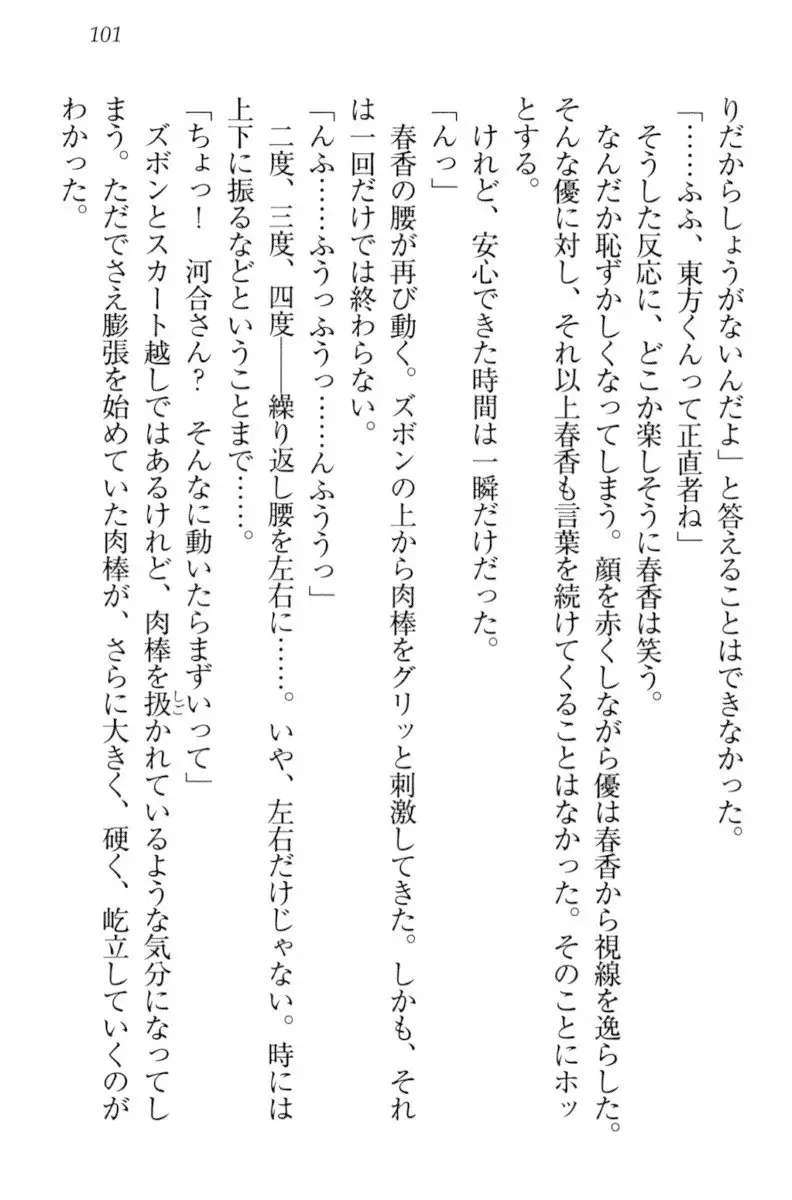 101
りだからしょうがないんだよ」と答えることはできなかった。
「……ふふ、東方くんって正直者ね」
そうした反応に、どこか楽しそうに春香は笑う。
なんだか恥ずかしくなってしまう。顔を赤くしながら優は春香から視線を逸らした。
そんな優に対し、それ以上春香も言葉を続けてくることはなかった。そのことにホッ
とする。
けれど、安心できた時間は一瞬だけだった。
「んっ」
春香の腰が再び動く。ズボンの上から肉棒をグリッと刺激してきた。しかも、それ
は一回だけでは終わらない。
「んふ……ふうっふうっ……んふううっ」
二度、三度、四度――繰り返し腰を左右に……。いや、左右だけじゃない。時には
上下に振るなどということまで……。
「ちょっ！　河合さん？　そんなに動いたらまずいって」
ズボンとスカート越しではあるけれど、肉棒を扱かれているような気分になってし
まう。ただでさえ膨張を始めていた肉棒が、さらに大きく、硬く、屹立していくのが
わかった。